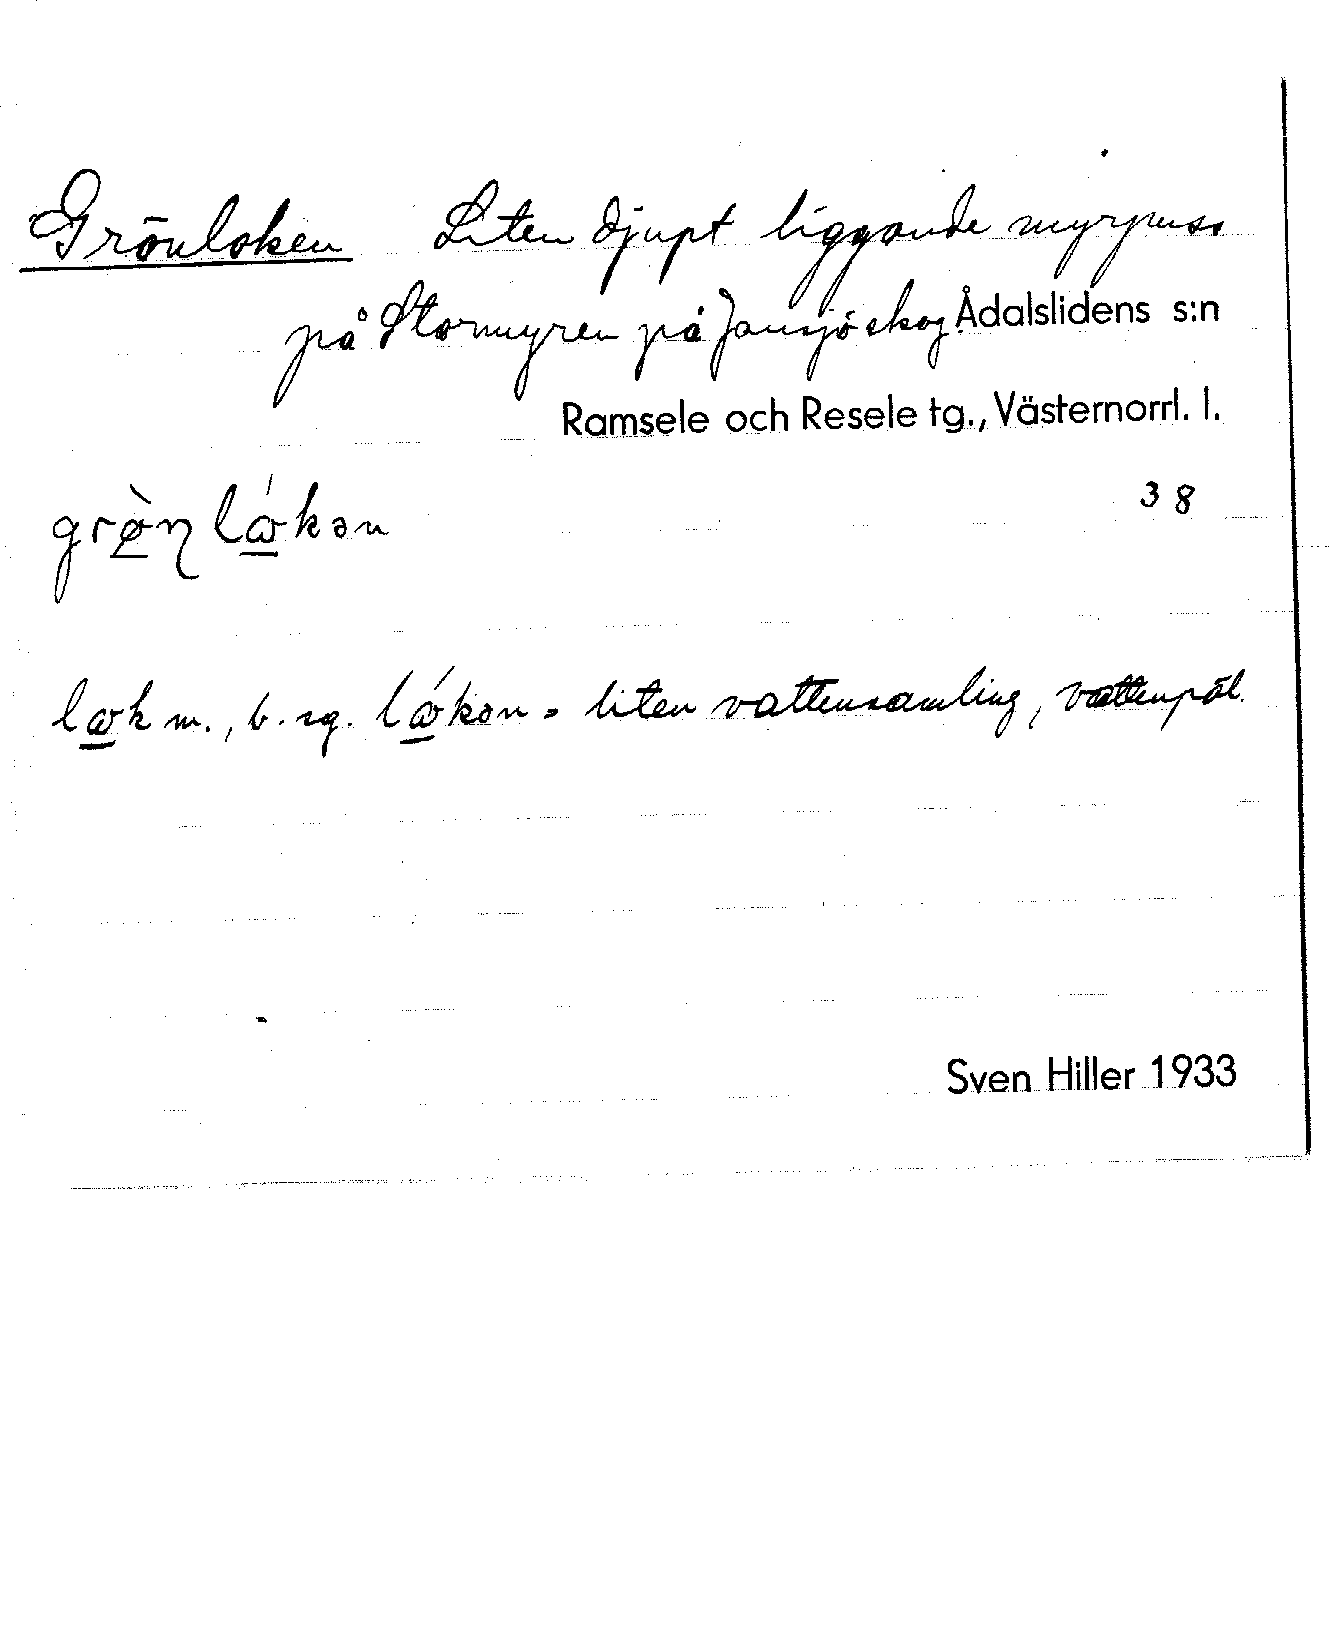 Grönloken Liten djupt liggande myrpuss
på Stormyren på Jansjö skog. Ådalslidens s:n
Ramsele och Resele tg., Västernorrl. l.
38
lok m., b. sg. = liten vattensamling, vattenpöl.
Sven Hiller 1933